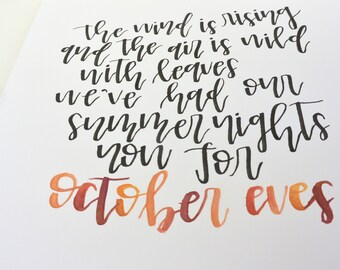 the wind is rising
and the air is wild
with leaves
we've had our
summer nights
now for
october eves